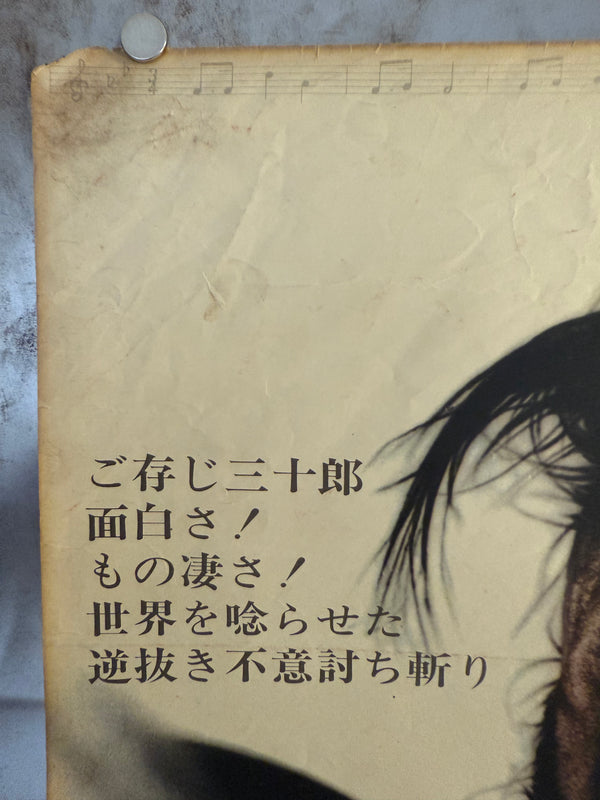 ご存じ三十郎
面白さ!
もの凄さ!
世界を唸らせた
逆抜き不意討ち斬り